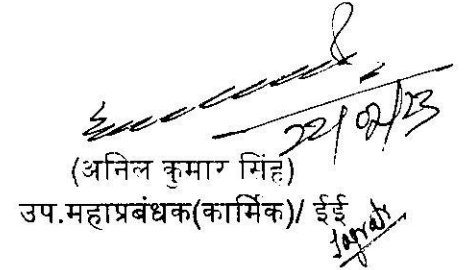 22/02/23
(अनिल कुमार सिंह)
उप.महाप्रबंधक(कार्मिक)/ ईई